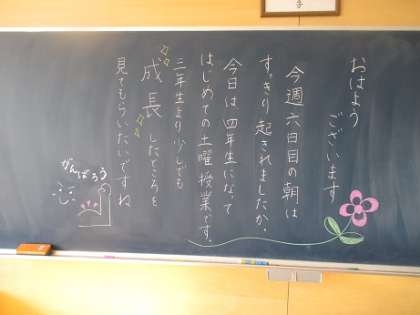 おはよう
ございます
今週六日目の朝は
すっきり起きれましたか。
今日は四年生になって
はじめての土曜授業です。
三年生より少しでも
成長したところを
見てもらいたいですね
がんばろう